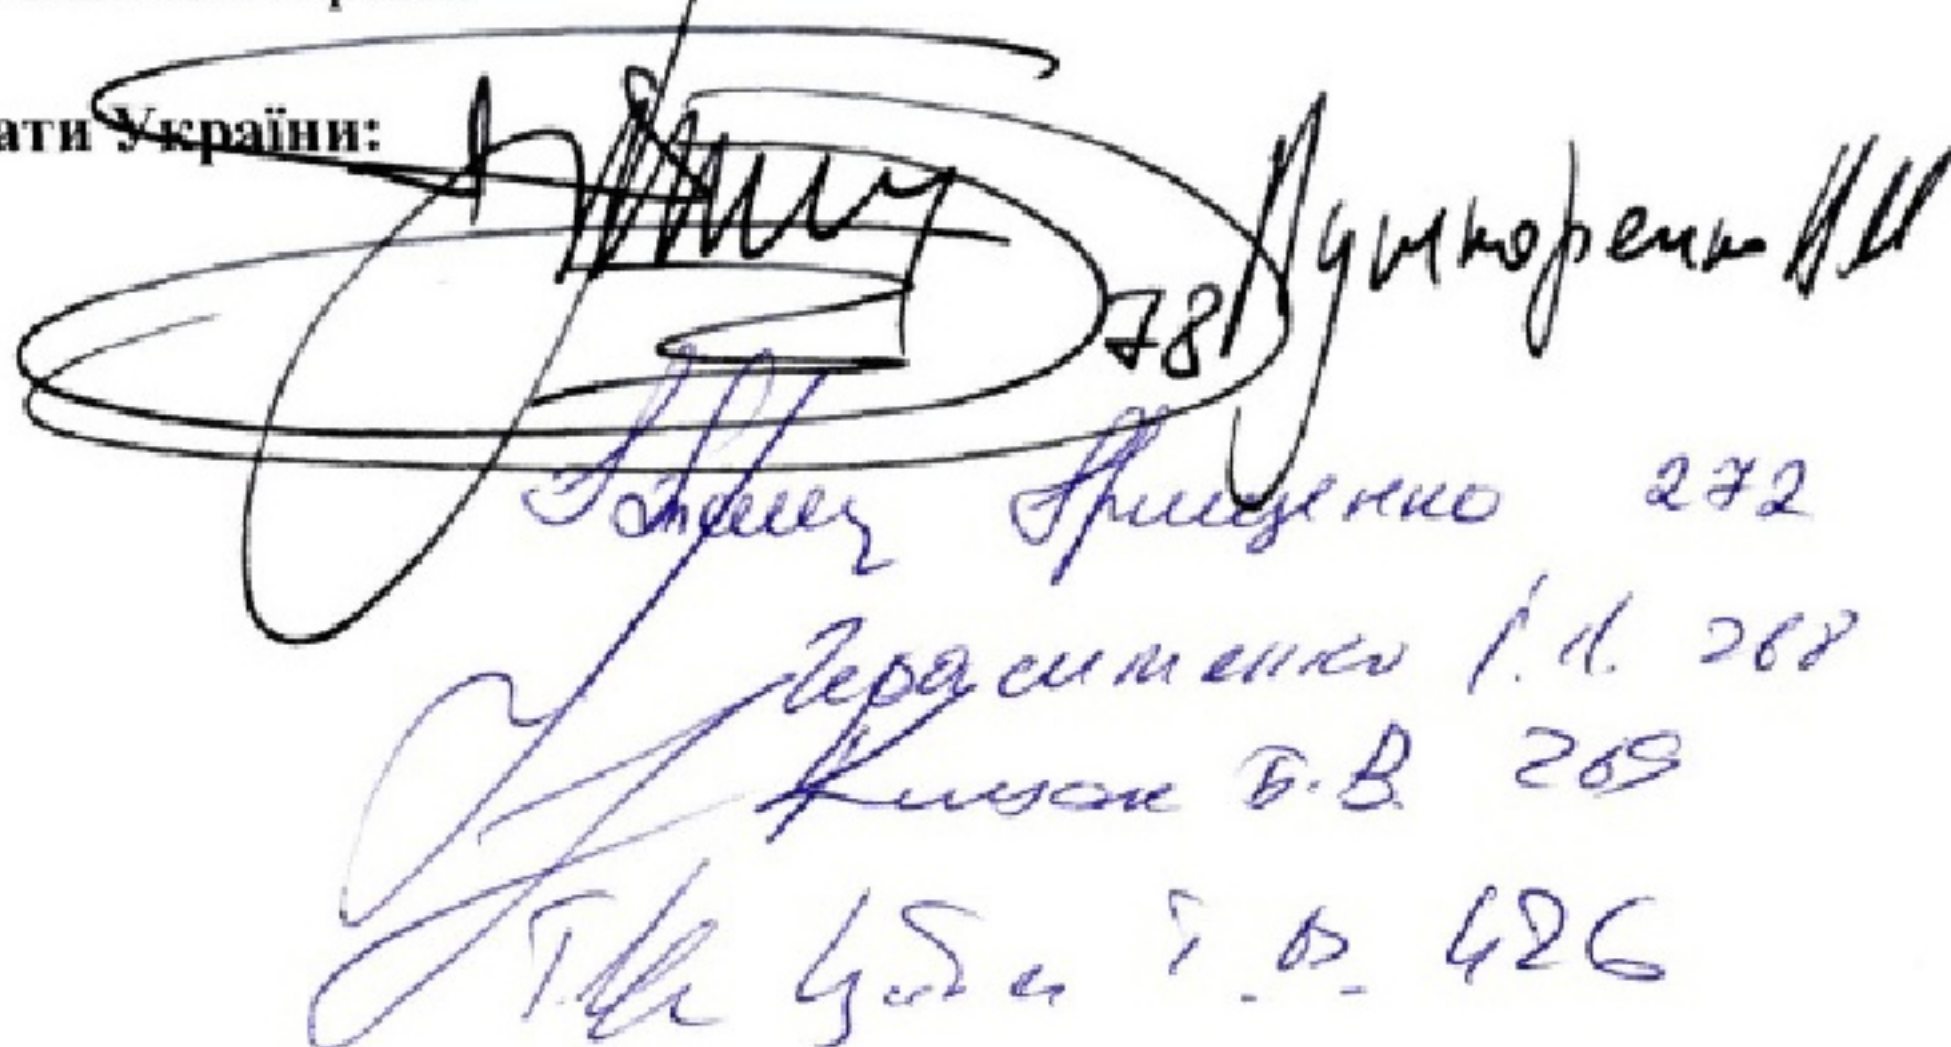 ати України:
78 Пушкаренко А М
Грищенко 272
Герасименко І. Л. 268
Кицак Б. В. 269
Цуба Т. В. 426